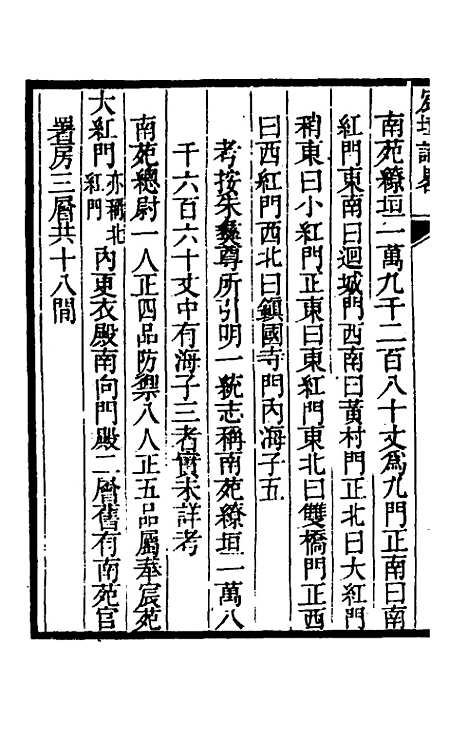 宸垣識畧
南苑繚垣一萬九千二百八十丈爲九門正南曰南
紅門東南曰迴城門西南曰黃村門正北曰大紅門
稍東曰小紅門正東曰東紅門東北曰雙橋門正西
曰西紅門西北曰鎮國寺門內海子五
考按朱彝尊所引明一統志稱南苑繚垣一萬八
千六百六十丈中有海子三者實未詳考
南苑總尉一人正四品防禦八人正五品屬奉宸苑
大紅門亦稱北紅門內更衣殿南向門殿二層舊有南苑官
署房三層共十八間